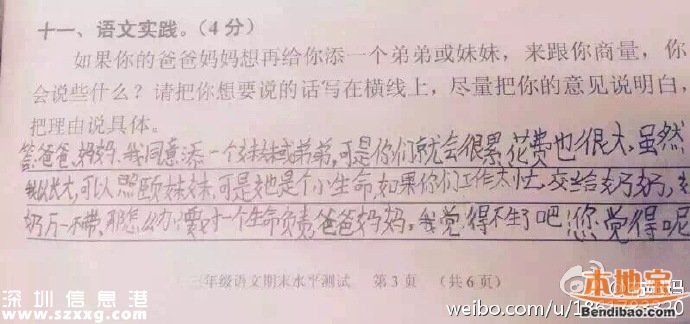 十一、语文实践。(4分)
如果你的爸爸妈妈想再给你添一个弟弟或妹妹，来跟你商量，你
会说些什么？请把你想要说的话写在横线上，尽量把你的意见说明白，
把理由说具体。
答:爸爸、妈妈,我同意添一个妹妹或弟弟,可是你们就会很累,花费也很大,虽然
我以长大,可以照顾妹妹,可是她是个小生命,如果你们工作太忙,交给奶奶,
奶万一不带,那怎么办,要对一个生命负责爸爸妈妈,我觉得不生了吧!您觉得呢
三年级语文期末水平测试 第3页 (共6页)
深圳信息港
www.szxxg.com
weibo.com/u/
本地宝
Bendibao.com